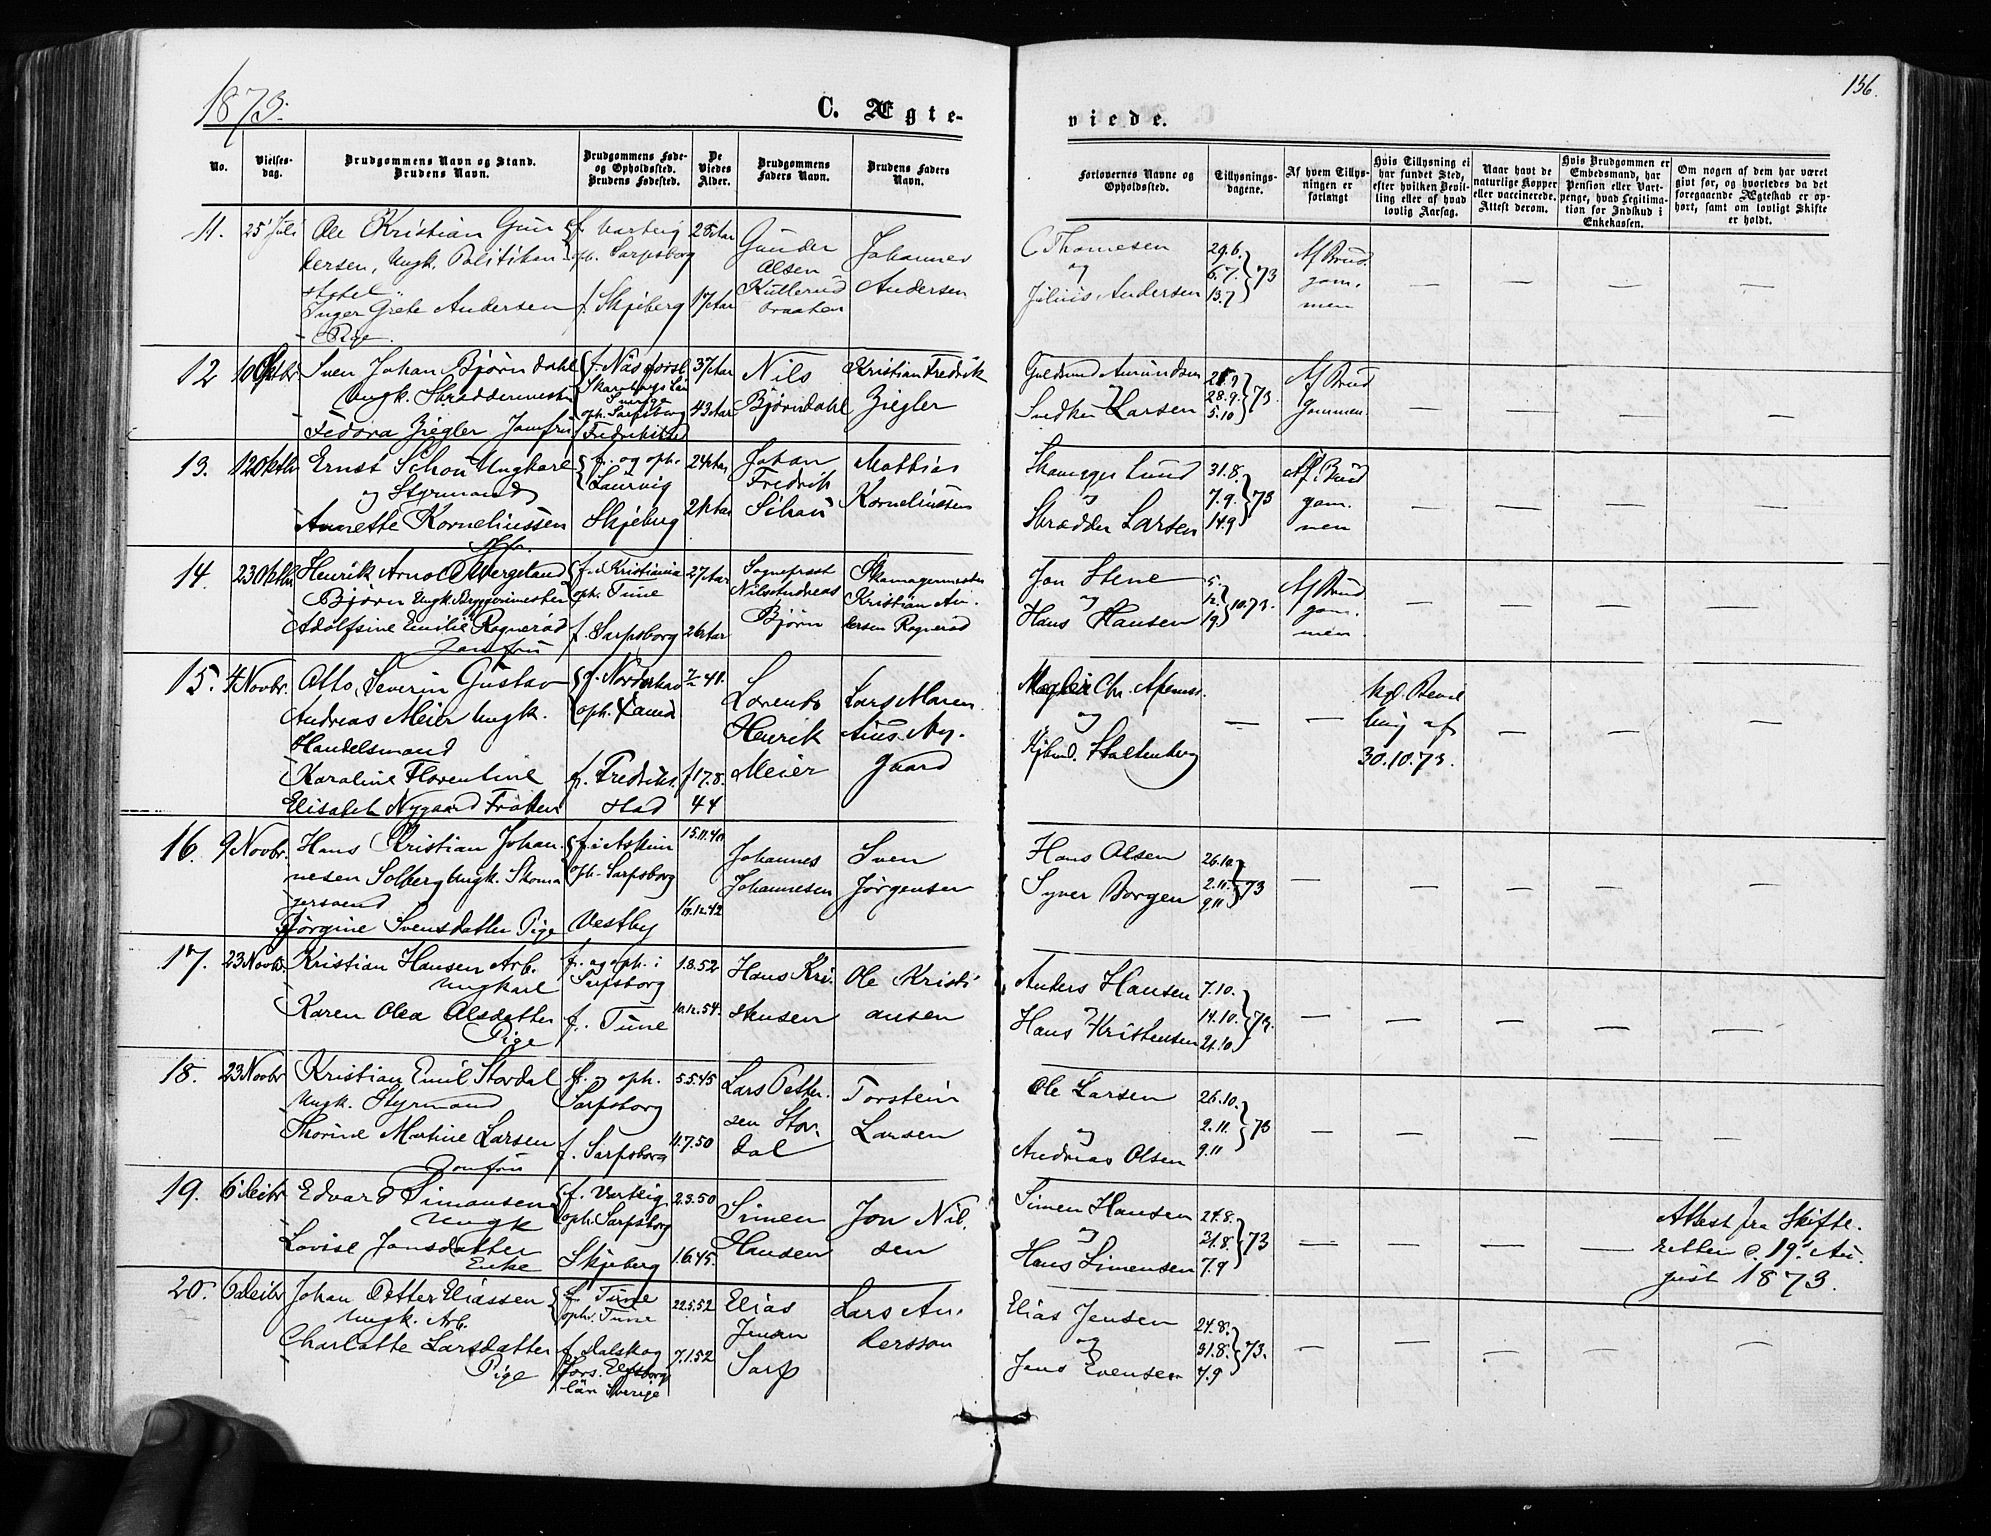 1873.
C. Ægte-
viede.
156.
No.
Vielses-
dag.
Brudgommens Navn og Stand.
Brudens Navn.
Brudgommens Føde-
og Opholdssted.
Brudens Fødested.
De
Viedes
Alder.
Brudgommens
Faders Navn.
Brudens Faders
Navn.
Forlovernes Navne og
Opholdssted.
Tillysnings-
dagene.
Af hvem Tillys-
ningen er
forlangt
Hvis Tillysning ei
har fundet Sted,
efter hvilken Bevil-
ling eller af hvad
lovlig Aarsag.
Naar havt de
naturlige Kopper
eller vaccinerede.
Attest derom.
Hvis Brudgommen er
Embedsmand, har
Pension eller Vart-
penge, hvad Legitima-
tion for Indskud i
Enkekassen.
Om nogen af dem har været
gift før, og hvorledes da det
foregaaende Ægteskab er op-
hørt, samt om lovligt Skifte
er holdt.
11.
25 Juli
Ole Kristian Gun
dersen, Ungk. Politikon-
stabel
Inger Grete Andersen
Pige.
f. Varteig
oph. Sarpsborg
f. Skjeberg
28 Aar
17 Aar
Gunder
Olsen
braaten
Johannes
Andersen
C Thomesen
og
Julius Andersen
29.6.
6.7.
13.7
73
Af Brud
gom.
men
12
10 Oktbr.
Sven Johan Bjørndahl
Ungk. Skræddermester
Fedora Ziegler Jomfru
Sverige
oph. Sarpsborg
Fredrikstad
37 Aar
43 Aar
Nils
Bjørndahl
Kristian Fredrik
Ziegler
Guldsmed Amundsen
og
Snedker Larsen
28.9.
5.10
73.
Af Brud
gommen.
13.
12 Oktbr
Ernst Schou Ungkarl
og Styrmand
Annette Korneliussen
Jfr.
f. og oph.
Laurvig
Skjeberg
24 Aar
21 Aar
Johan
Fredrik
Schou
Mathies
Korneliussen
Lund
og
Skrædder Larsen
31.8.
7.9.
14.9
73
Af Brud
gom.
men
14.
23 Oktbr
Henrik Arnold Wergeland
Bjørn Ungk. Bryggerimester
Adolfine Emilie Rognerød
Jomfru
f. i Kristiania
oph. Tune
f. Sarpsborg
27 Aar
26 Aar
Sogneprest
Nils Andreas
Bjørn
Skomagermester
Kristian An.
dersen Rognerød
Jon Stene
og
Hans Hansen
5.
12.
19
10.73.
Af Brud
gom.
men.
15.
4 Novbr.
Otto, Severin Gustav
Andreas Meier Ungk.
Handelsmand
Karoline Florentine
Elisabet Nygaard Frøken
f. Norderhov
oph.
f. Fredrik.
stad
41.
17.8.
44
Lorents
Henrik
Meier
Lars Maren
Aius Ny.
gaard
Mægler Chr.
og
Kjbmd. Stoltenberg
Kgl. Bevil
ling af
30.10.73.
16.
9 Novbr.
Hans Kristian Johan.
nesen Solberg Ungk. Skoma
gersvend
Jørgine Svensdatter Pige
f. i Askim
oph. Sarpsborg
Vestby
15.11.40
16.12.42
Johannes
Johannesen
Sven
Jørgensen
Hans Olsen
Syver Borgen
26.10
2.11.
9.11
73
17.
23 Novbr.
Kristian Hansen Arb.
Ungkarl
Karen Olea Olsdatter
Pige
f. og oph. i
Sarpsborg
f. Tune
1.8.52
10.12.54.
Hans Kri.
stensen
Ole Kristi
ansen
Anders Hansen
og
Hans Kristensen
7.10.
14.10.
21.10
73.
18.
23 Novbr
Kristian Emil Stordal
Ungk. Styrmand
Thorine Martine Larsen
Jomfru
f. og oph.
Sarpsborg
f. Sarpsborg
5.5.45
11.7.50
Lars Petter.
sen Stor.
dal
Torstein
Larsen
Ole Larsen
og
Andreas Olsen
26.10.
2.11.
9.11
73
19.
6 Decbr
Edvard Simonsen
Ungk
Lovise Jonsdatter
Enke
f. Varteig
oph. Sarpsborg
Skjeberg
2.3.50
1.6.45.
Simen
Hansen
Jon Nil.
sen
Simen Hansen
og
Hans Simensen
24.8.
31.8.
7.9
73
Attest fra Skifte.
retten d. 19de Au
gust 1873.
20.
6 Decbr
Johan Petter Eliassen
Ungk. Arb.
Charlotte Larsdatter
Pige
f. Tune
oph. Tune
f. Dalskog
Elfsborgs
län Sverige
22.5.52
7.1.52
Elias
Jensen
Sarp
Lars An.
dersson
Elias Jensen
og
Jens Evensen
24.8.
31.8.
7.9
73.